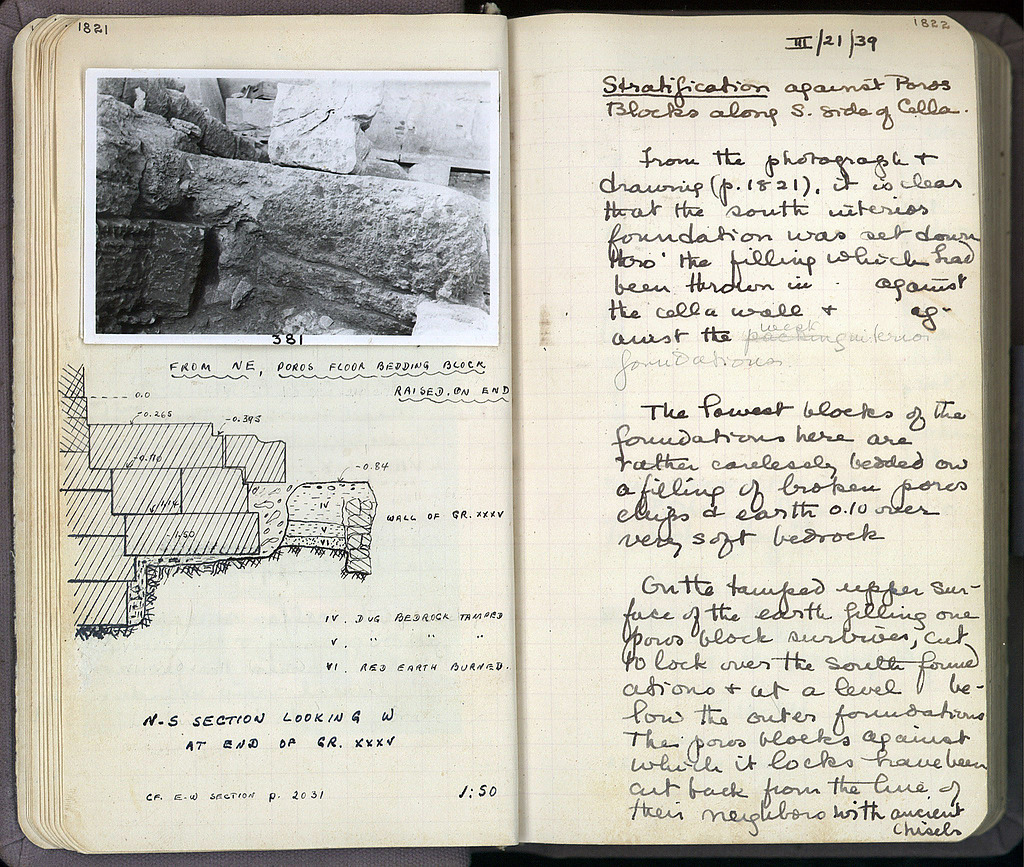 1821
381
FROM NE, POROS FLOOR BEDDING BLOCK
RAISED ON END
0.0
-0.265
-0.395
-0.84
WALL OF GR. XXXV
IV
V
VI
-1.50
IV. DUG BEDROCK TAMPED
V. " " "
VI. RED EARTH BURNED.
N-S SECTION LOOKING W
AT END OF GR. XXXV
CF. E-W SECTION p. 2031
1:50
1822
III/21/39
Stratification against Poros
Blocks along S. side of Cella.
From the photograph +
drawing (p. 1821), it is clear
that the south interior
foundation was set down
thro' the filling which had
been thrown in against
the cella wall + ag-
ainst the packing west interior
foundations.
The lowest blocks of the
foundations here are
rather carelessly bedded on
a filling of broken poros
chips & earth 0.10 over
very soft bedrock
On the tamped upper sur-
face of the earth filling one
poros block survives, cut
to lock over the south found
ations + at a level be-
low the outer foundations
The poros blocks against
which it locks have been
cut back from the line of
their neighbors with ancient
chisels